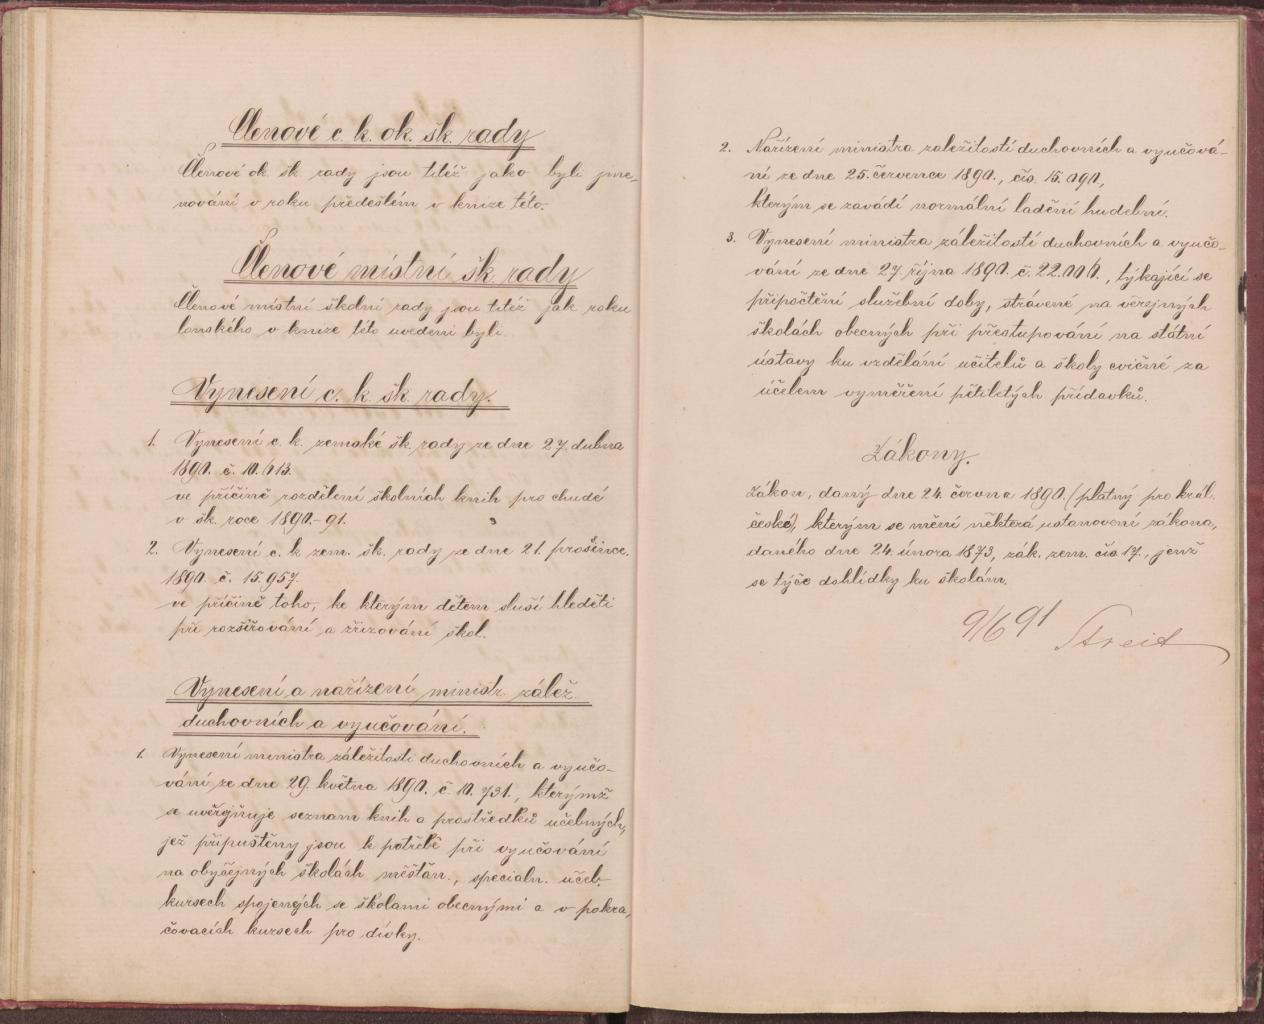 Členové c. k. ok. šk. rady
Členové ok. šk. rady jsou titíž jako byli jme-
nováni v roku předešlém v knize této.
Členové místní šk. rady
Členové místní školní rady jsou titíž jak roku
lonského v knize této uvedeni byli
Vynesení c. k. šk. rady.
1. Vynesení c. k. zemské šk. rady ze dne 27. dubna
1890. č.
ve příčině rozdělení školních knih pro chudé
v šk. roce 1890.-91.
2. Vynesení c. k. zem. šk. rady ze dne 21. prosince.
1890. č. 15.957.
ve příčině toho, ke kterým dětem sluší hleděti
při rozšiřování a zřizování škol.
Vynesení a nařízení ministr. zálež.
duchovních a vyučování.
1. Vynesení ministra záležitostí duchovních a vyučo-
vání ze dne 29. května 1890. č. 10.731., kterýmž
se uveřejňuje seznam knih a prostředků učebných,
jež připuštěny jsou k potřebě při vyučování
na obyčejných školách měšťan., specialn. učeb.
kursech spojených se školami obecnými a v pokra-
čovacích kursech pro dívky.
2. Nařízení ministra zaležitostí duchovních a vyučová-
ní ze dne 25. července 1890., čís. 15.090,
kterým se zavádí normální ladění hudební.
3. Vynesení ministra záležitostí duchovních a vyučo-
vání ze dne 27. října 1890. č. 22.006., týkající se
připočtění služební doby, strávené na veřejných
školách obecných při přestupování na státní
ústavy ku vzdělání učitelů a školy cvičné za
účelem vyměření pětiletých přídavků.
Zákony.
Zákon, daný dne 24. června 1890. (platný pro král.
české), kterým se mění některá ustanovení zákona,
daného dne 24. února 1873, zák. zem. čís. 17., jenž
se týče dohlídky ku školám.
9/6 91 Streit